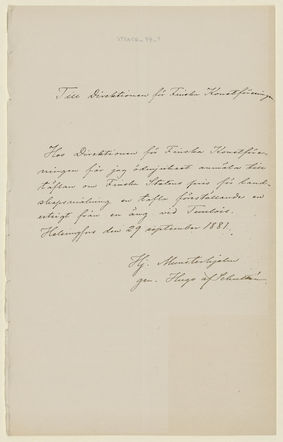 Till Direktionen för Finska Konstföreningen
Hos Direktionen för Finska Konstföre-
ningen får jag ödmjukast anmäla till
täflan om Finska Statens pris för land-
skapsmålning en tafla föreställande en
utsigt från en äng vid
Helsingfors den 29 september 1881.
Hj. Munsterhjelm
gen. Hugo af Schultén